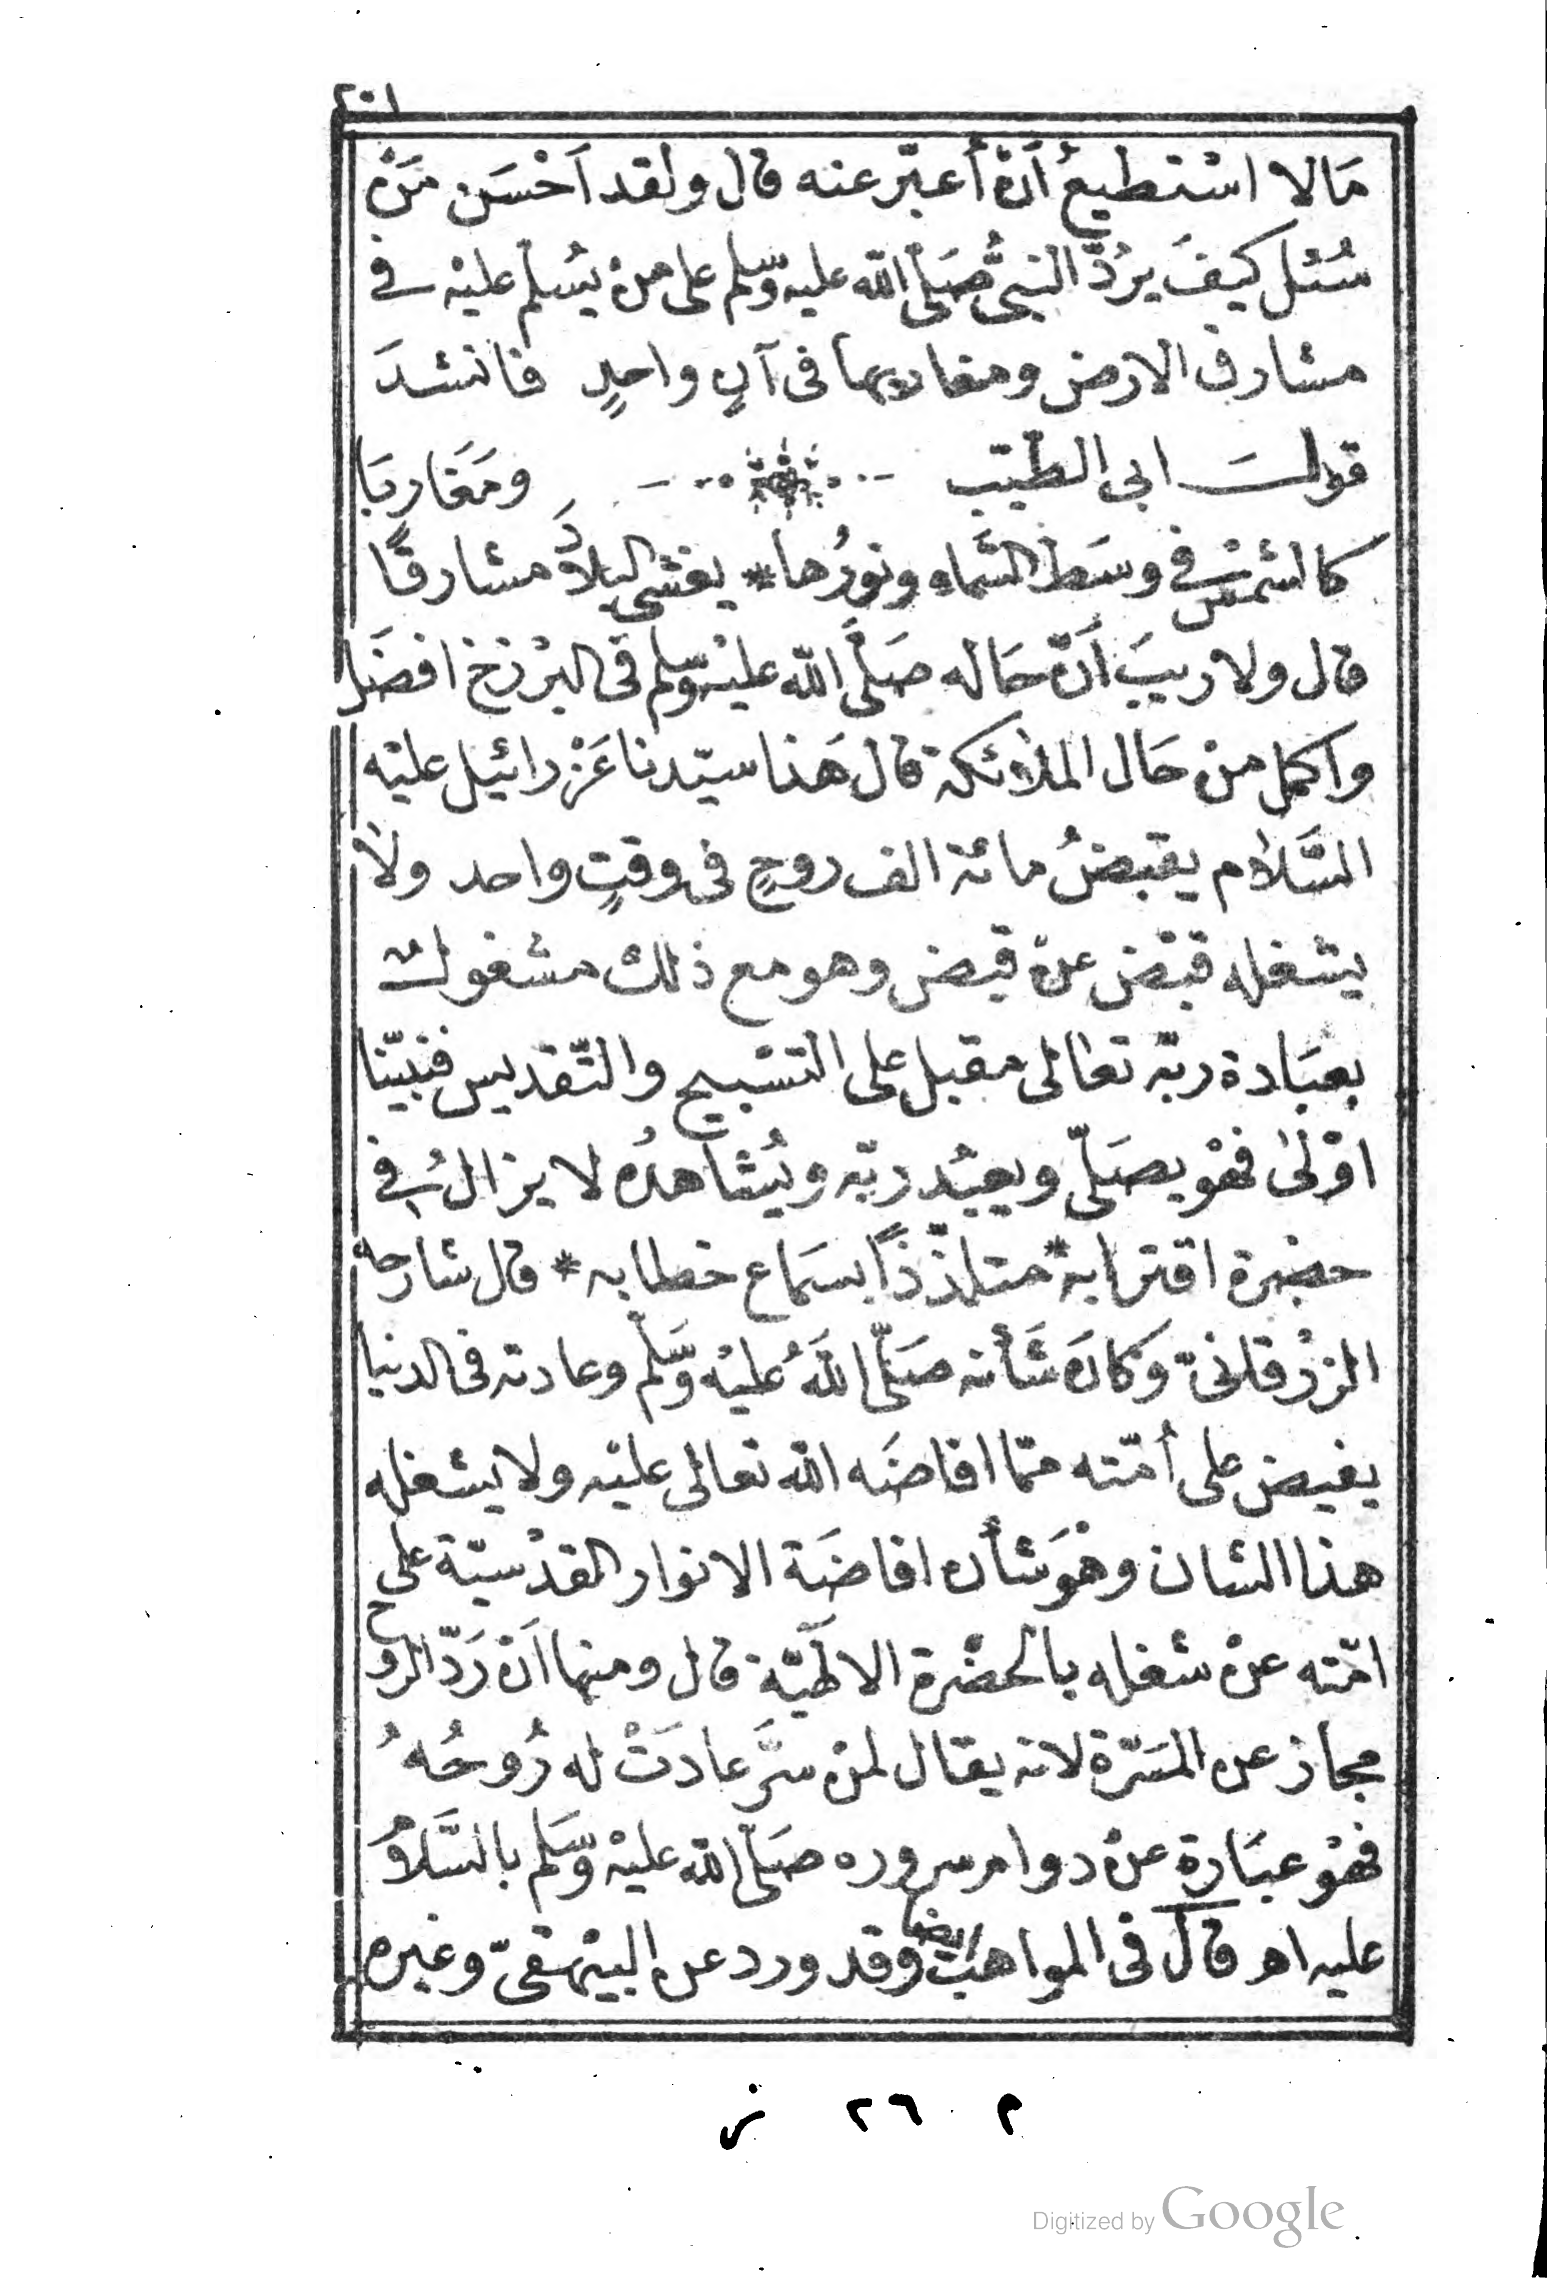 ٢٠١
مَالا اسْتطيعُ أنْ أعبّر عنه قال ولقد اَحْسَن مَنْ
سُئل كيفَ يرُدّ النبىُّ صَلى الله عليه وسلم على منْ يُسلم عليْه فى
مشارق الارض ومغاربها فى آنٍ واحدٍ فانشدَ
قولَ ابى الطيّب ومَغَاربَا
كالشمْس فى وسَط السَّماءِ ونورُها * يغشى البلادَ مشارقًا
قال ولا ريبَ اَنّ حَاله صَلَّى الله عليْه وسلم فى البرْزخ افضَل
واكمل منْ حَال الملائكة قال هَذا سيّدنا عَزْرائيل عليْه
السَّلام يقبضُ مائة الف روحٍ فى وقتٍ واحد ولاَ
يشغله قبْض عنْ قبض وهو مع ذلك مشغولٌ
بعبَادة ربّه تعَالى مقبل على التسْبيح والتّقديس فنبيّنا
اوْلىٰ فهْو يصَلّى ويعبُد ربّه ويُشاهدُه لا يزالُ فى
حضرة اقترابه * متلذّذًا بسَماع خطابه * قال شارحه
الزرْقانىّ وكانَ شَأنه صَلّى اللهُ عليْه وَسَّلم وعادته فى الدنيا
يفيض على أمّته ممّا افاضَه الله تعالى عليْه ولا يشغله
هذا الشان وهْوَ شأن افاضَة الانوار القدْسيّة على
امّته عنْ شغله بالحضْرة الالٰهيّة قال ومنها اَنْ رَدّ الروح
مجاز عن المسَرّة لانه يقال لمنْ سرَّ عادَتْ له رُوحُهُ
فهْو عبَارة عنْ دوام سروره صَلّى الله عليْه وسَّلم بالسَّلامِ
عليه اه قال فى المواهب ايضا وقد ورد عن البيْهقىّ وغيره
م ٢٦ ز
Digitized by Google